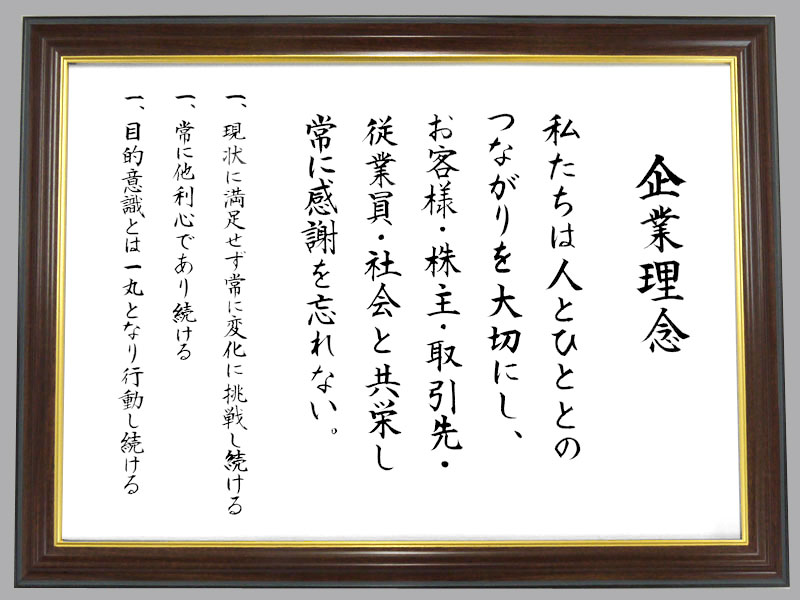 企業理念
私たちは人とひととの
つながりを大切にし、
お客様・株主・取引先・
従業員・社会と共栄し
常に感謝を忘れない。
一、現状に満足せず常に変化に挑戦し続ける
一、常に他利心であり続ける
一、目的意識とは一丸となり行動し続ける